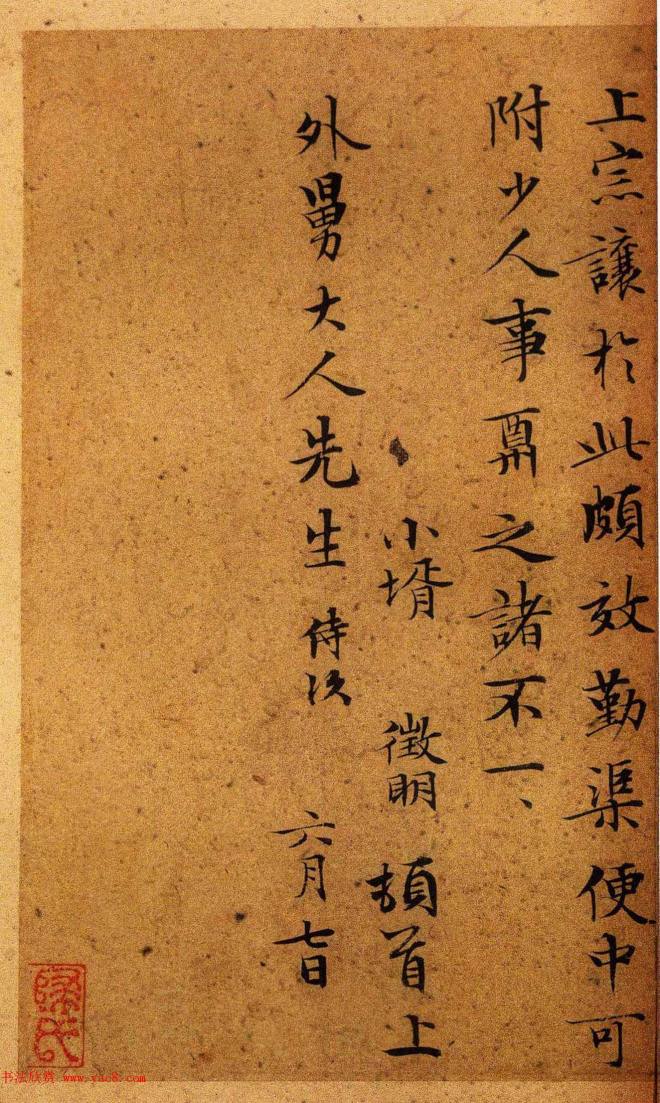 上宗讓於此頗效勤渠便中可
附少人事與之諸不一、
小壻 徵明 頓首上
外舅大人先生 侍次
六月七日
書法欣賞 www.yac8.com